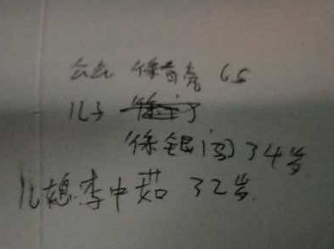 公公 徐首亮 65
儿子
徐银河 34岁
儿媳 李中茹 32岁